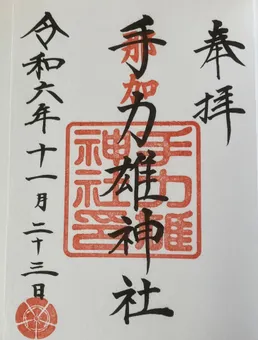 奉拝
那加
手力雄神社
手力雄神社印
令和六年十一月二十三日